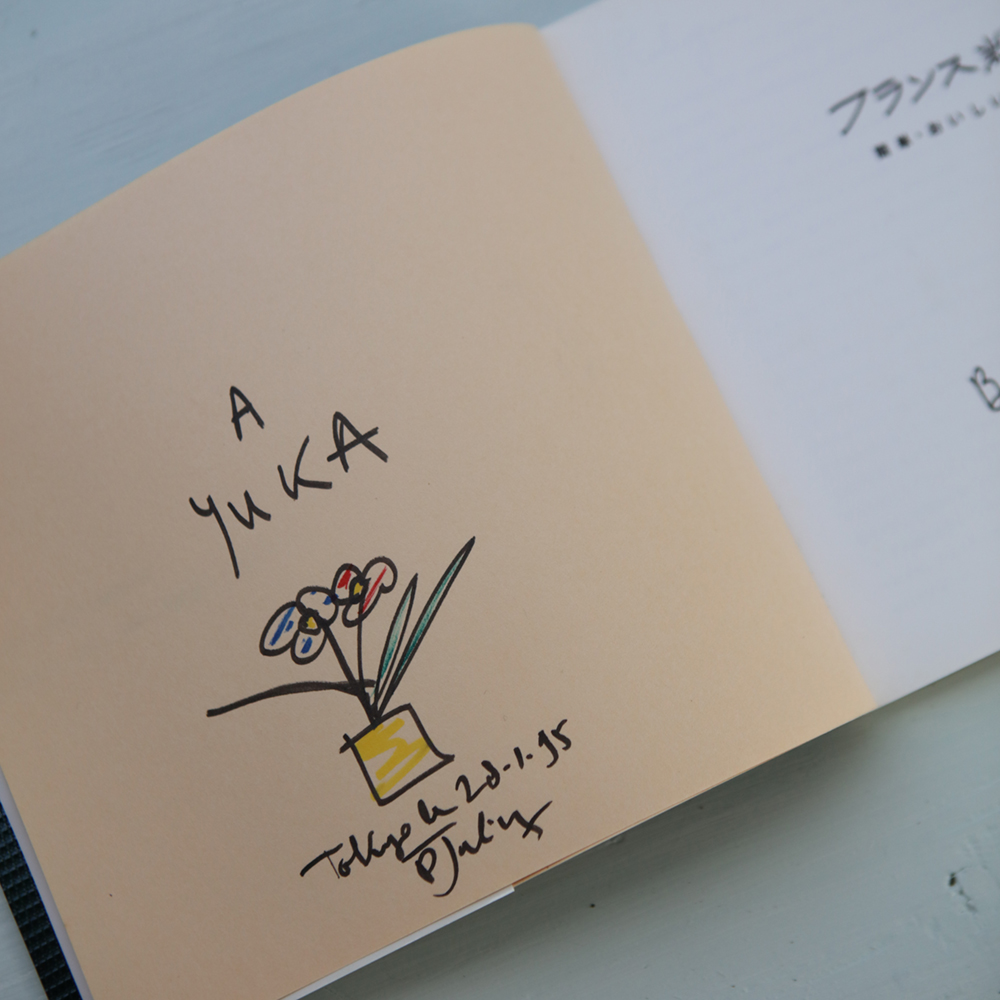 A
YUKA
Tokyo le 28-1-95
P Salinx
フランス料
B